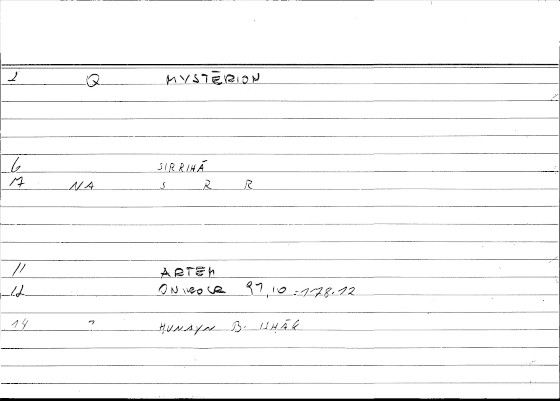 2 Q MYSTĒRION
6 SIRRIHĀ
7 NA S R R
11 ARTEM
12 ONIROCR 97,10 = 178.12
14 HUNAYN B. ISHĀK